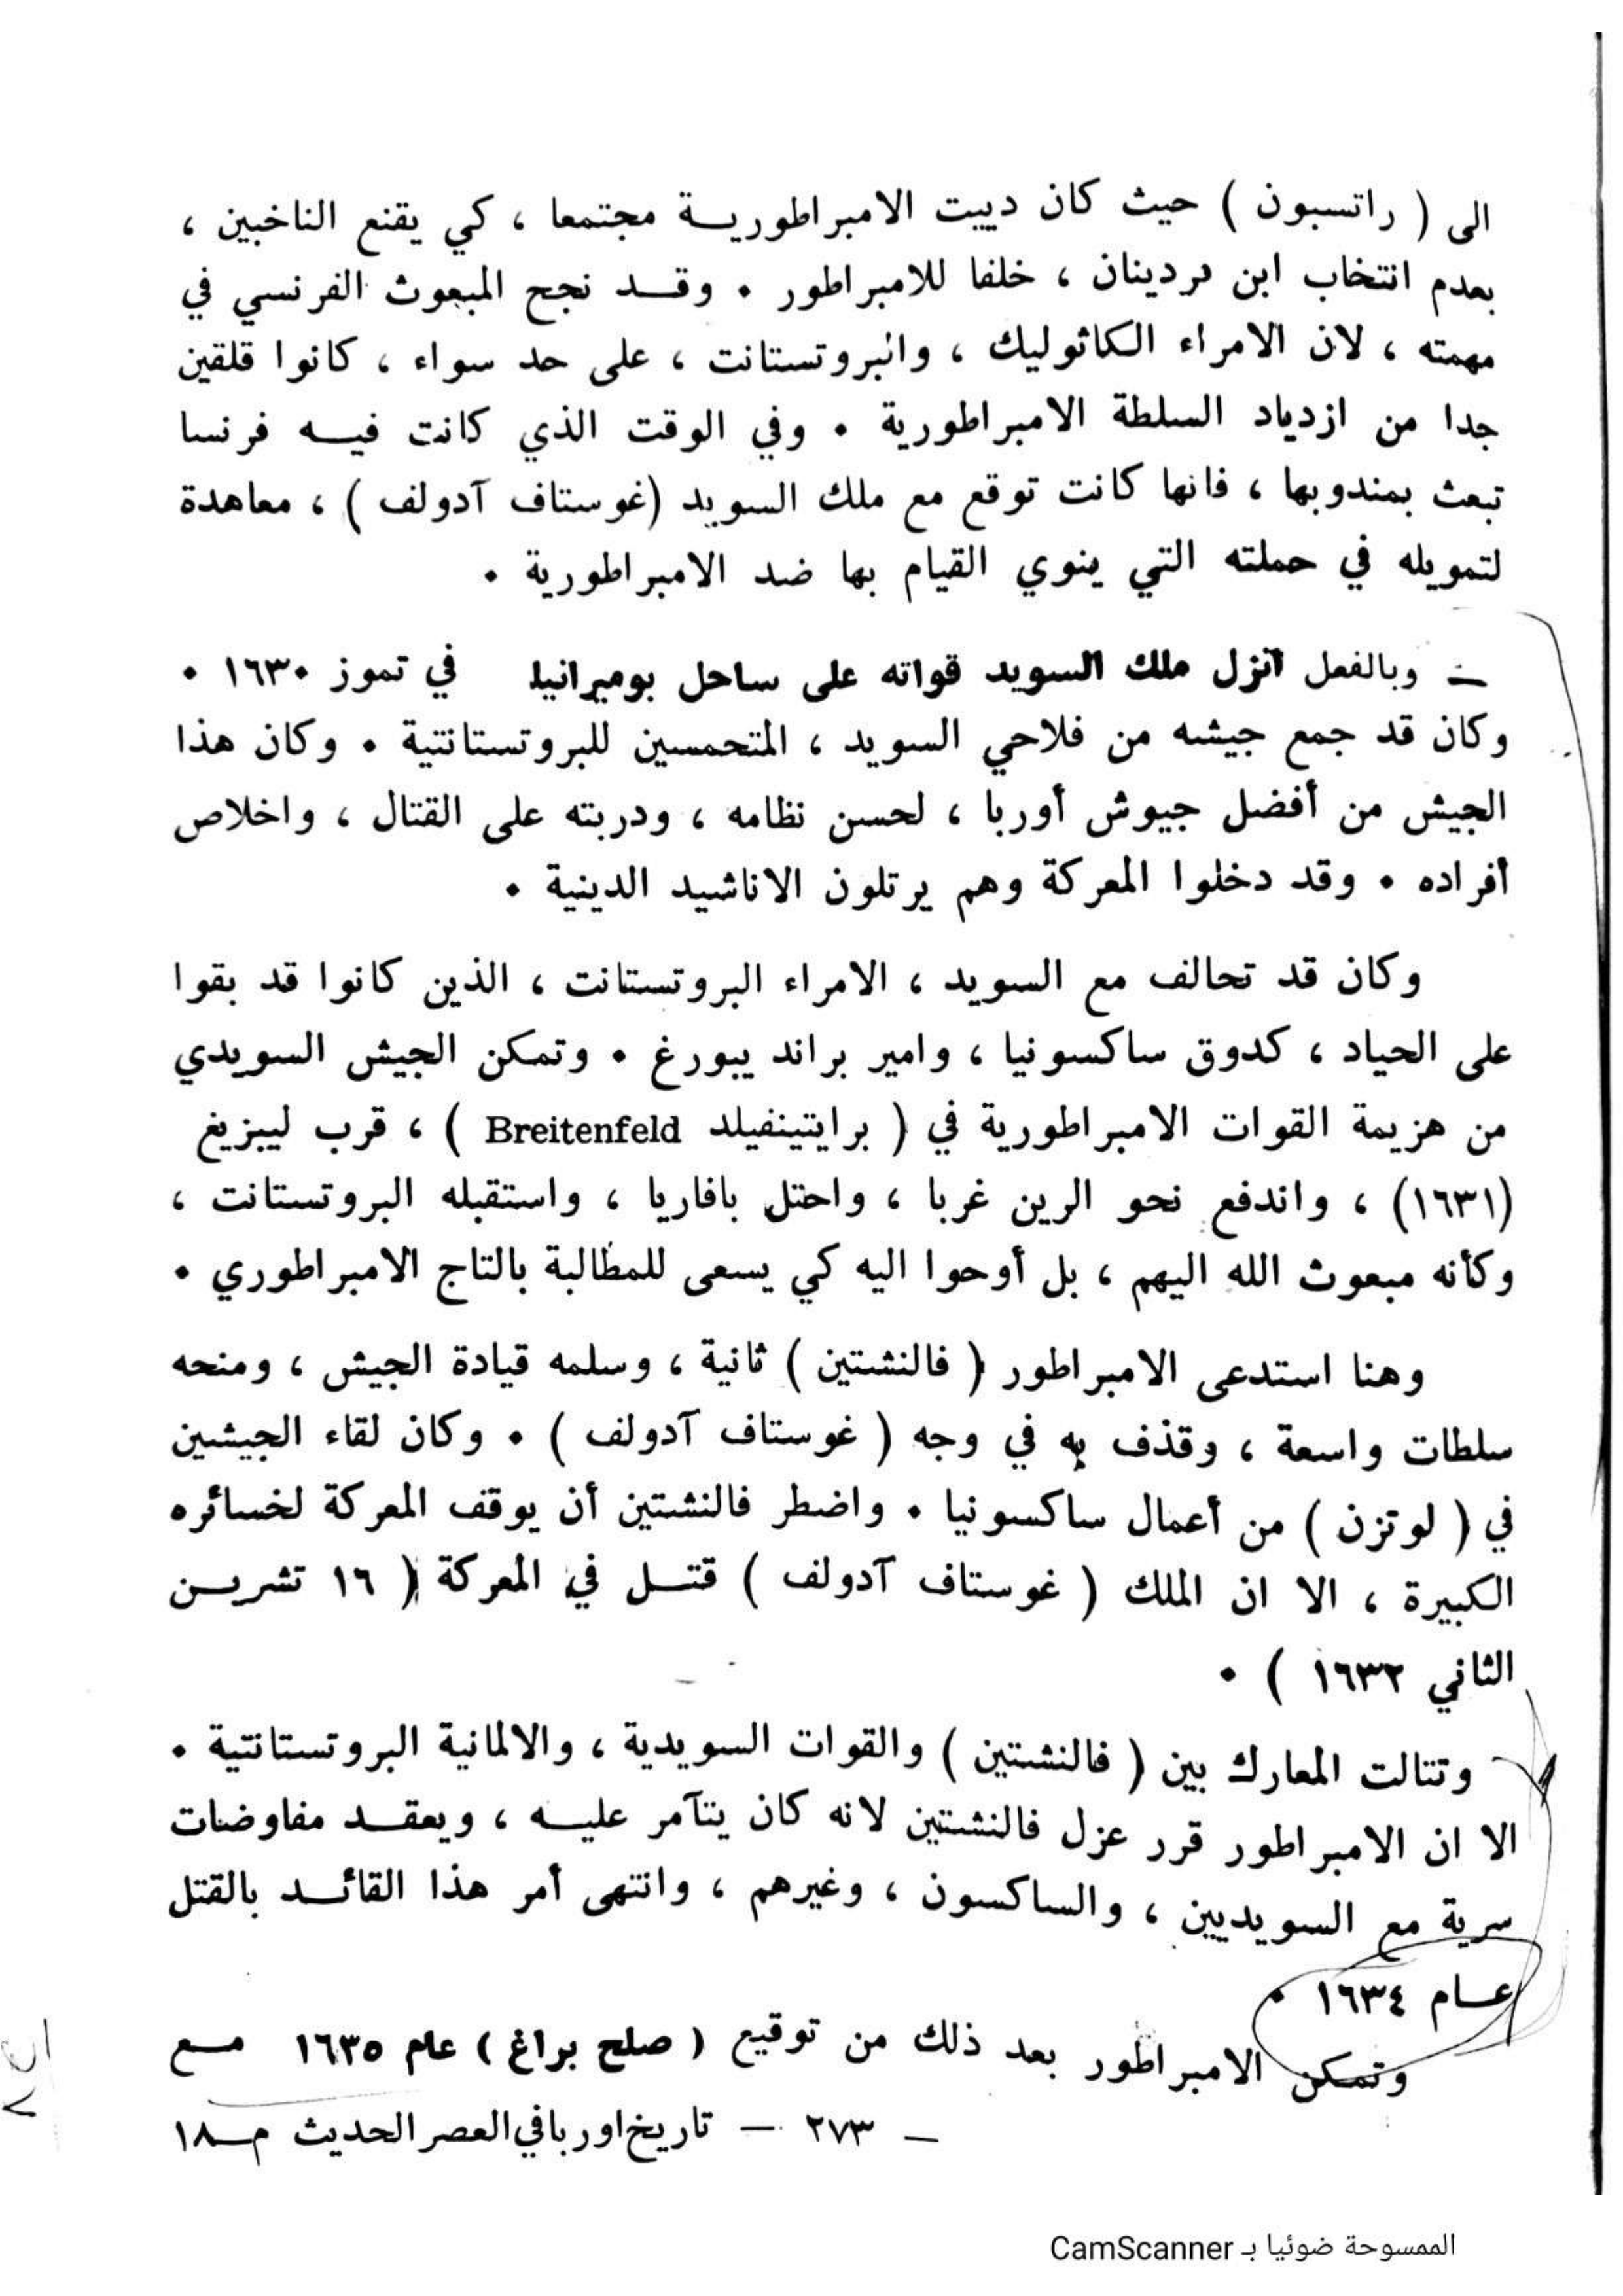 الى ( راتسبون ) حيث كان دييت الامبراطوريــة مجتمعا ، كي يقنع الناخبين ،
بعدم انتخاب ابن فردينان ، خلفا للامبراطور . وقــد نجح المبعوث الفرنسي في
مهمته ، لان الامراء الكاثوليك ، والبروتستانت ، على حد سواء ، كانوا قلقين
جدا من ازدياد السلطة الامبراطورية . وفي الوقت الذي كانت فيــه فرنسا
تبعث بمندوبها ، فانها كانت توقع مع ملك السويد (غوستاف آدولف ) ، معاهدة
لتمويله في حملته التي ينوي القيام بها ضد الامبراطورية .
ــ وبالفعل انزل ملك السويد قواته على ساحل بوميرانيا في تموز ١٦٣٠ .
وكان قد جمع جيشه من فلاحي السويد ، المتحمسين للبروتستانتية . وكان هذا
الجيش من أفضل جيوش أوربا ، لحسن نظامه ، ودربته على القتال ، واخلاص
أفراده . وقد دخلوا المعركة وهم يرتلون الاناشيد الدينية .
وكان قد تحالف مع السويد ، الامراء البروتستانت ، الذين كانوا قد بقوا
على الحياد ، كدوق ساكسونيا ، وامير براند يبورغ . وتمكن الجيش السويدي
من هزيمة القوات الامبراطورية في ( برايتينفيلد Breitenfeld ) ، قرب ليبزيغ
(١٦٣١) ، واندفع نحو الرين غربا ، واحتل بافاريا ، واستقبله البروتستانت ،
وكأنه مبعوث الله اليهم ، بل أوحوا اليه كي يسعى للمطالبة بالتاج الامبراطوري .
وهنا استدعى الامبراطور ( فالنشتين ) ثانية ، وسلمه قيادة الجيش ، ومنحه
سلطات واسعة ، وقذف به في وجه ( غوستاف آدولف ) . وكان لقاء الجيشين
في ( لوتزن ) من أعمال ساكسونيا . واضطر فالنشتين أن يوقف المعركة لخسائره
الكبيرة ، الا ان الملك ( غوستاف آدولف ) قتــل في المعركة ( ١٦ تشريــن
الثاني ١٦٣٢ ) .
وتتالت المعارك بين ( فالنشتين ) والقوات السويدية ، والالمانية البروتستانتية .
الا ان الامبراطور قرر عزل فالنشتين لانه كان يتآمر عليــه ، ويعقــد مفاوضات
سرية مع السويديين ، والساكسون ، وغيرهم ، وانتهى أمر هذا القائــد بالقتل
عــام ١٦٣٤ .
وتمكن الامبراطور بعد ذلك من توقيع ( صلح براغ ) عام ١٦٣٥ مــع
ــ ٢٧٣ ــ تاريخ اوربا في العصر الحديث مــ١٨
الممسوحة ضوئيا بـ CamScanner